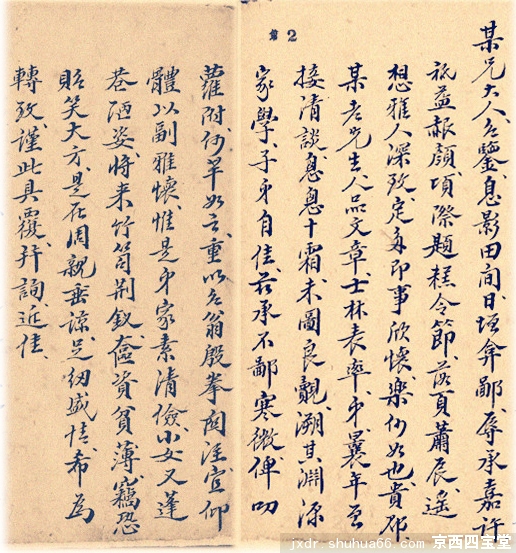 第2
某兄大人台鑒息影田間日垣弇鄙辱承嘉許
祗益赧顏頃際題糕令節落頁蕭辰遙
想雅人深致定多即事欣懷樂何如也貴邵
某老先生人品文章士林表率弟曩年曾
接清談忽忽十霜未圖良覿溯其淵源
家學子弟自佳茲承不鄙寒微俾叨
蘿附何幸如之重以台翁殷拳関注宜仰
體以副雅懷惟是弟家素清儉小女又蓬
荅陋姿将来竹笥荆釵奩資貧薄竊恐
貽笑大方是在周親垂諒足紉感情希為
轉致謹此具覆幷詢近佳
京西四宝堂
jxdr.shuhua66.com